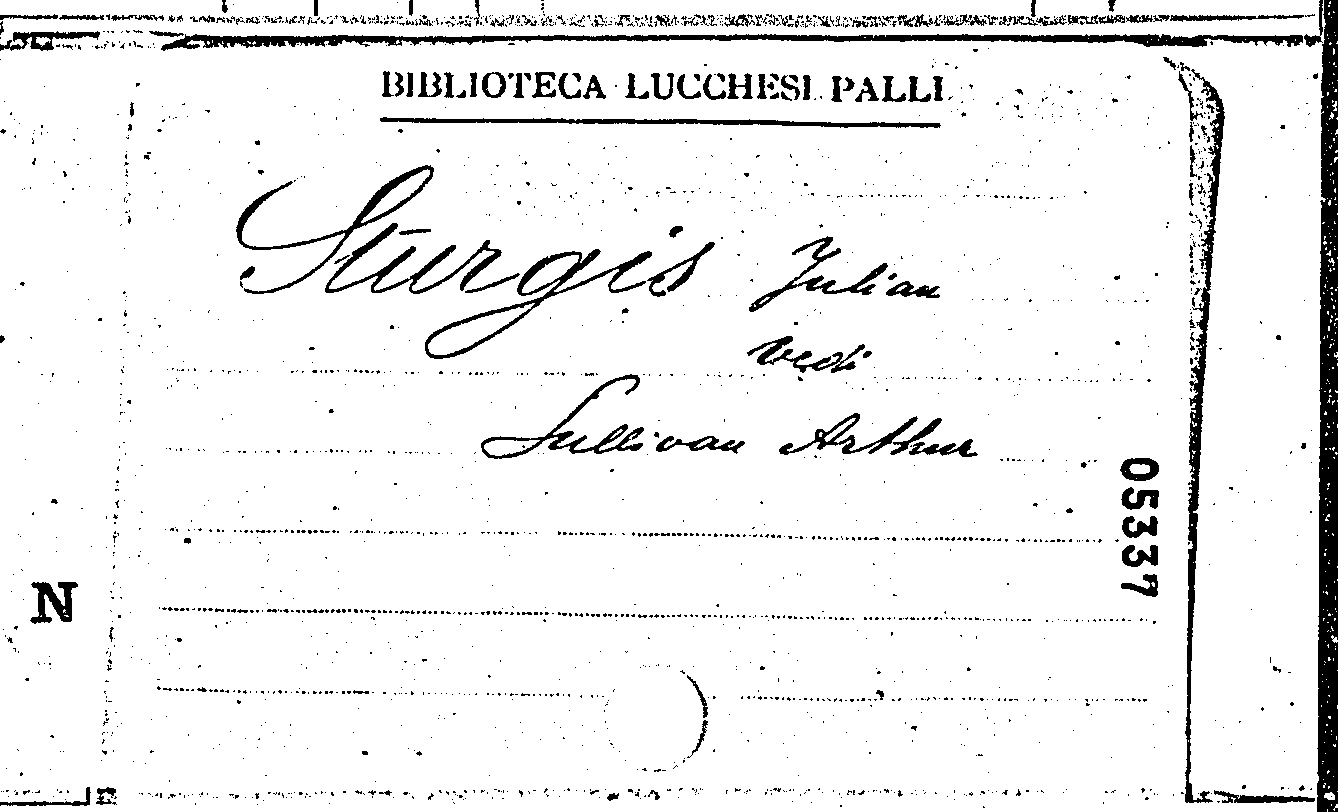 BIBLIOTECA LUCCHESI PALLI
Sturgis Julian
vedi
Sullivan Arthur
05337
N